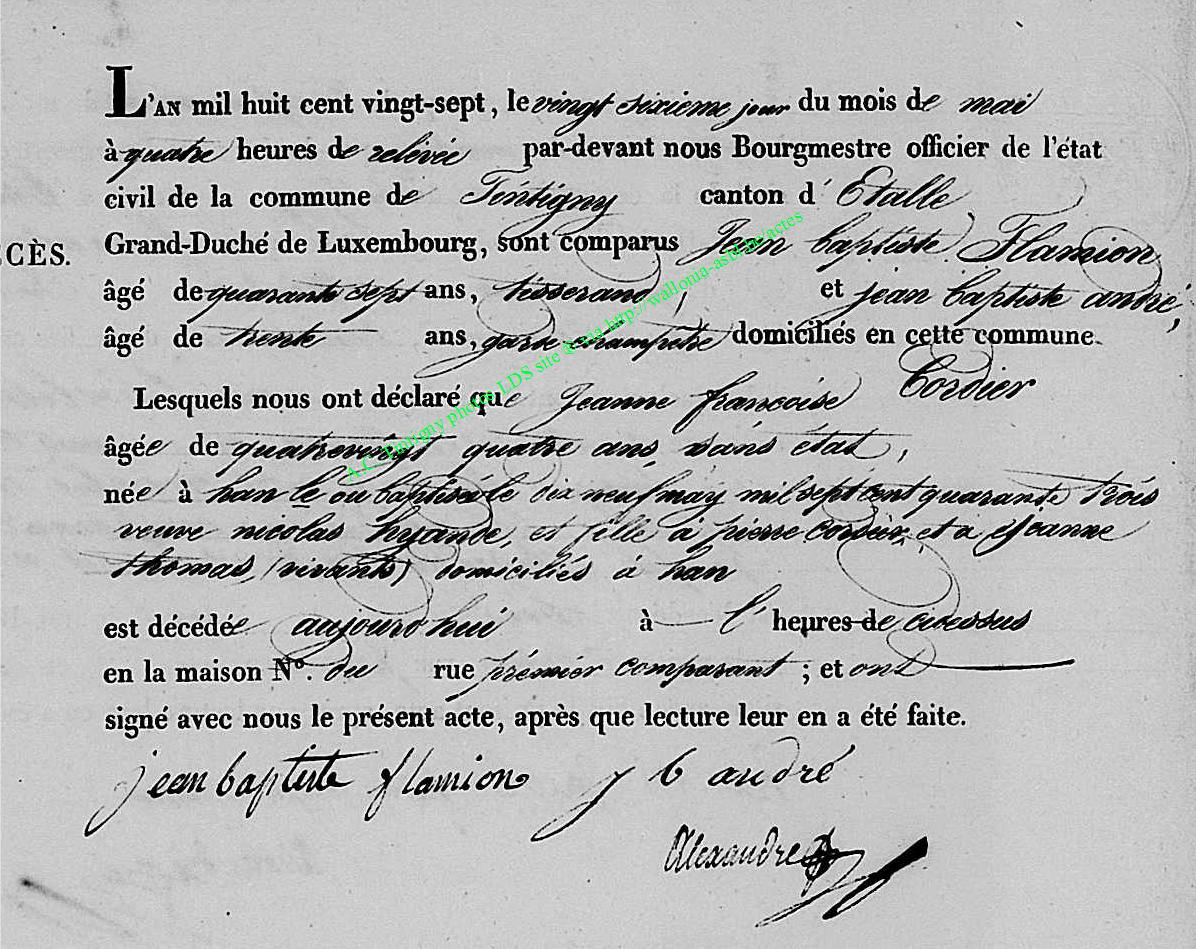 L'AN mil huit cent vingt-sept, le vingt sixieme jour du mois de mai
à quatre heures de relevée par-devant nous Bourgmestre officier de l'état
civil de la commune de Tintigny canton d' Etalle
CÈS. Grand-Duché de Luxembourg, sont comparus Jean baptiste Flamion
âgé de quarante sept ans, tisserand, et jean baptiste andré,
âgé de trente ans, garde champêtre domiciliés en cette commune.
Lesquels nous ont déclaré que Jeanne françoise Cordier
âgée de quatrevingt quatre ans, sans état,
née à han le ou baptisée le dix neuf may mil sept cent quarante trois
veuve nicolas hyande, et fille à pierre cordier, et à Jeanne
thomas, (vivants) domiciliés à han
est décédée aujourd'hui à l' heures de cidessus
en la maison N°. du rue prémier comparant ; et ont
signé avec nous le présent acte, après que lecture leur en a été faite.
jean baptiste flamion j b andré
Alexandre
A.C. Tintigny photos LDS site @ via http://wallonia-asbl.be/actes